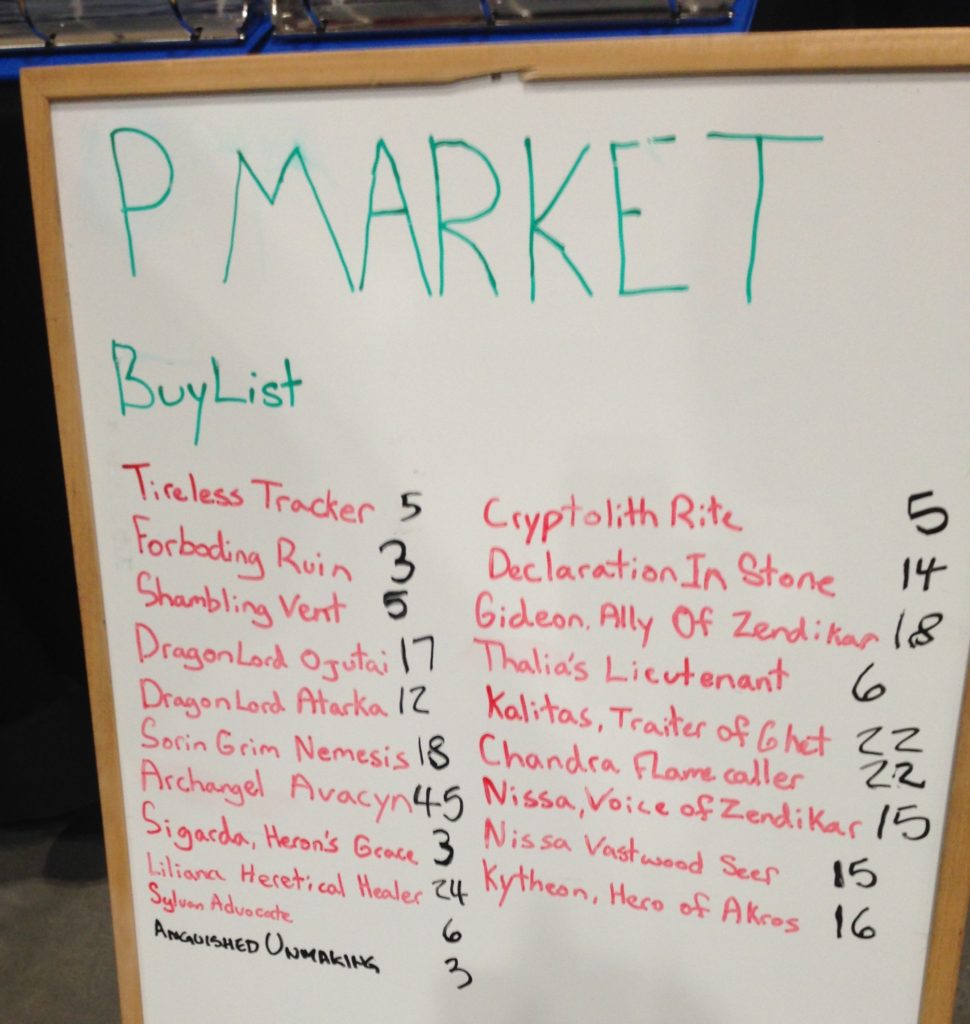 P MARKET
BuyList
Tireless Tracker 5
Forboding Ruin 3
Shambling Vent 5
DragonLord Ojutai 17
DragonLord Atarka 12
Sorin Grim Nemesis 18
Archangel Avacyn 45
Sigarda, Heron's Grace 3
Liliana Heretical Healer 24
Sylvan Advocate 6
ANGUISHED UNMAKING 3
Cryptolith Rite 5
Declaration In Stone 14
Gideon. Ally Of Zendikar 18
Thalia's Lieutenant 6
Kalitas, Traiter of Ghet 22
Chandra Flamecaller 22
Nissa, Voice of Zendikar 15
Nissa Vastwood Seer 15
Kytheon, Hero of Akros 16